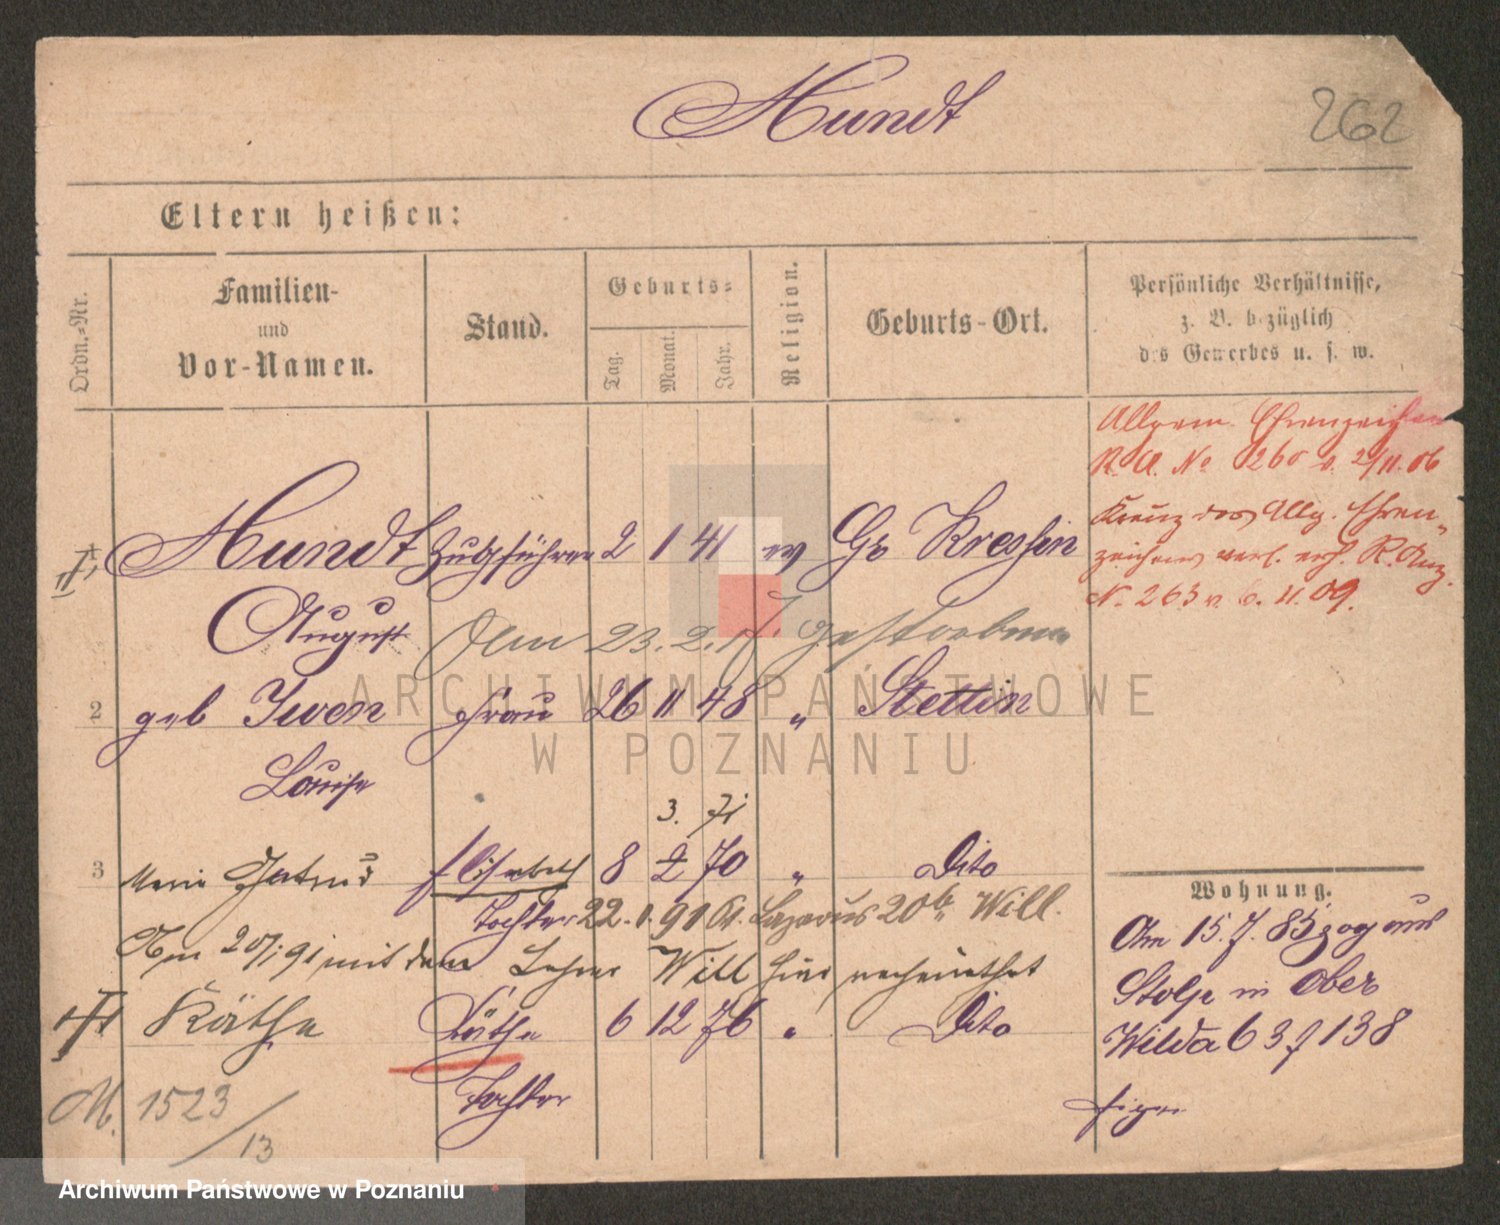 Hundt
262
Eltern heißen:
Ordn.-Nr.
Familien-
und
Vor-Namen.
Stand.
Geburts-
Tag.
Monat.
Jahr.
Religion.
Geburts-Ort.
Persönliche Verhältnisse,
z. B. bezüglich
des Gewerbes u. s. w.
Allgem. Ehrenzeichen
R. A. No 260 v. 2/11. 06
Kreuz des Allg. Ehren-
zeichens verl. R. Anz.
No. 263 v. 6. 11. 09.
1 Hundt Zugführer 2 1 41 ev Gr Kressin
August
Am 23. 2. 17. gestorben
2 geb Iwen Frau 26 11 48 " Stettin
Louise
3. 71
3 Marie Gertrud Elisabeth 8 2 70 " Dito
Tochter 22. 1. 91 St. Lazarus 20b Will.
Am 20/1 91 mit dem Lehrer Will hier verheirathet
Käthe Käthe 6 12 76 " Dito
Tochter
M. 1523/13
Wohnung.
Am 15. 7. 85 zog aus
Stolp in Ober
Wilda 63 f 138
ARCHIWUM PAŃSTWOWE
W POZNANIU
Archiwum Państwowe w Poznaniu